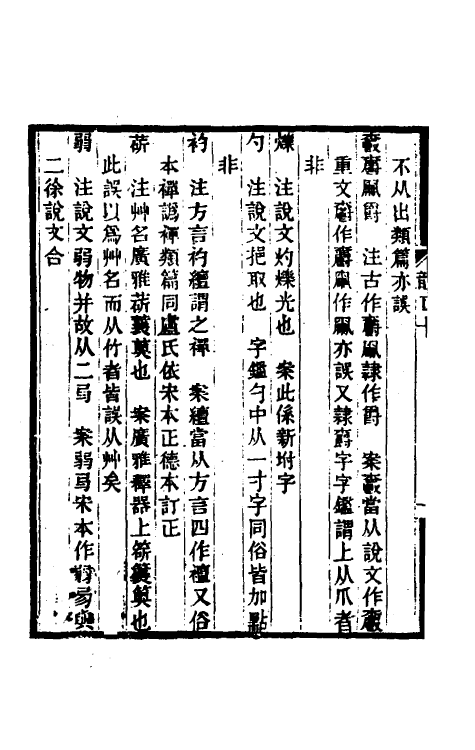 不从出類篇亦誤
爵 注古作𠙖隷作爵 案當从說文作
重文作作亦誤又隸爵字字鑑謂上从爪者
非
爍 注說文灼爍光也 案此係新坿字
勺 注說文挹取也 字鑑勺中从一寸字同俗皆加點
非
礿 注方言礿䄠謂之襌 案䄠當从方言四作襢又俗
本襌譌禪類篇同盧氏依宋本正德本訂正
葯 注艸名廣雅䈊䉶䉚也 案廣雅釋器上䈊䉶䉚也
此誤以爲艸名而从竹者皆誤从艸矣
弱 注說文弱物并故从二㢱 案弱㢱宋本作
二徐說文合